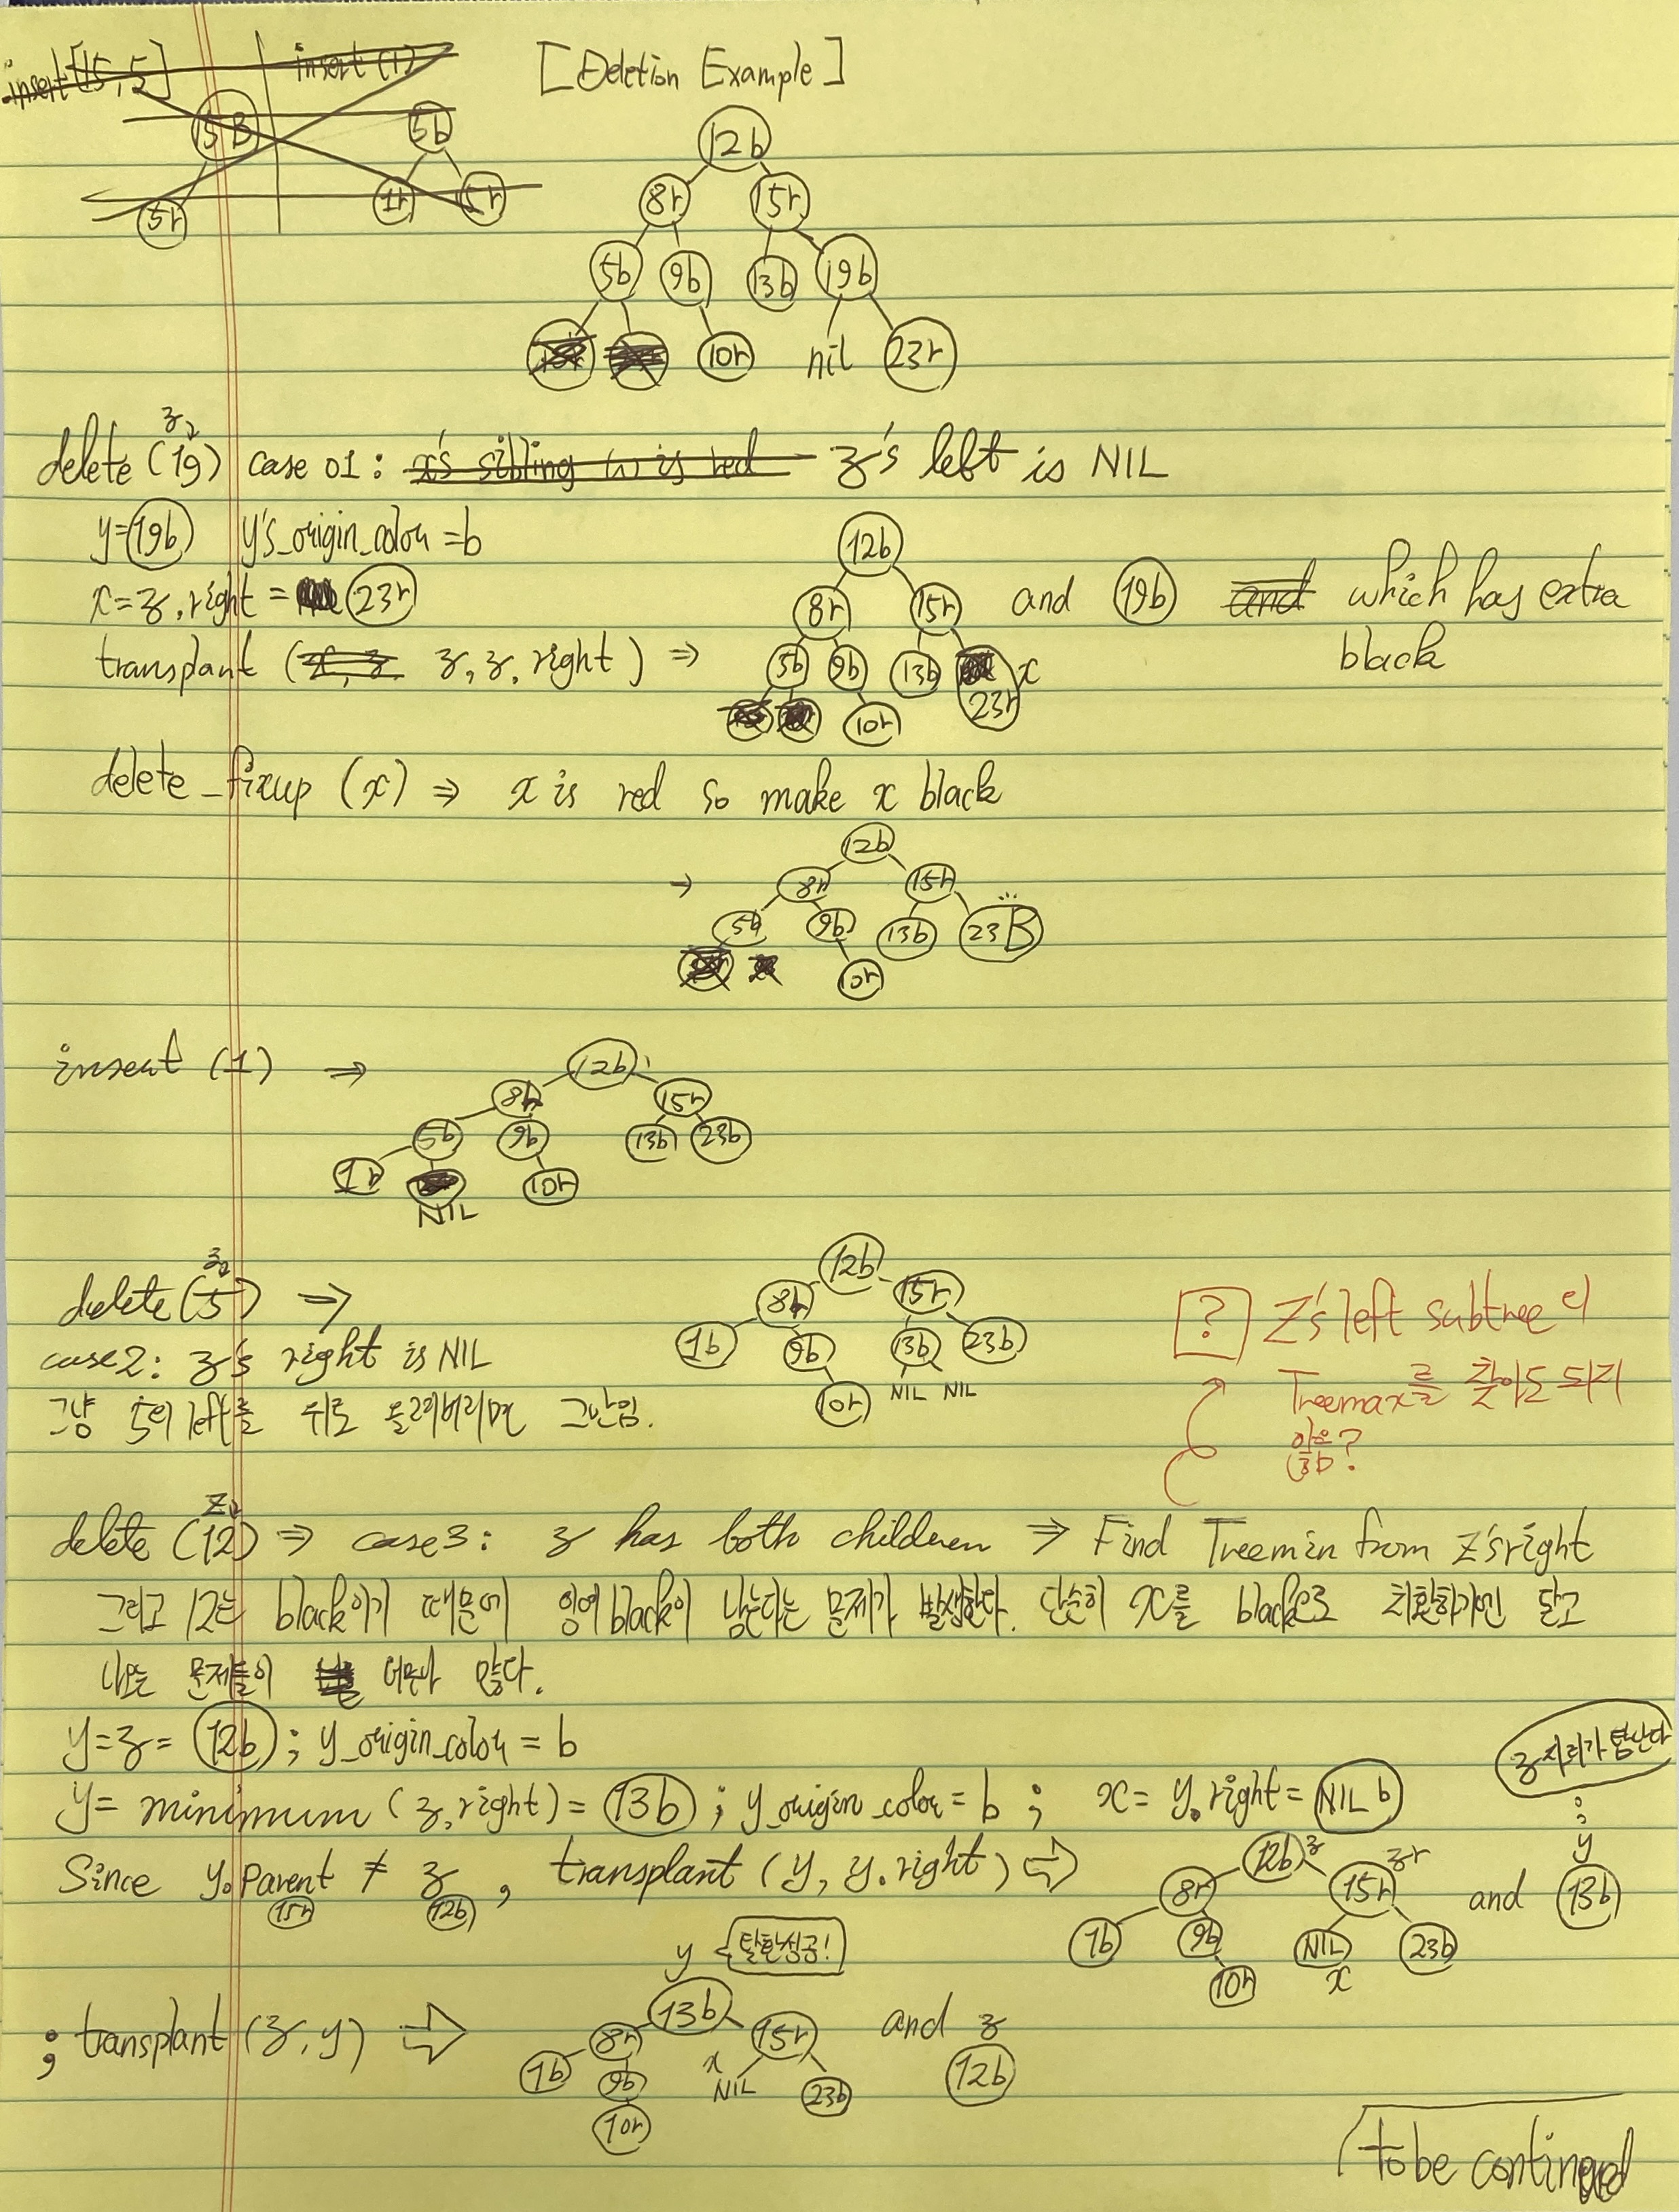 insert[15, 5] insert(1) [Deletion Example]
15B 5b 12b
5r 1r 5r 8r 15r
5b 9b 13b 19b
10r nil 23r
z
delete(19) case 01: x's sibling w is red z's left is NIL
y=19b y's_origin_color=b 12b
x=z.right= 23r 8r 15r and 19b and which has extra
transplant (x, z z, z.right) ⇒ 5b 9b 13b x black
10r 23r
delete_fixup (x) ⇒ x is red so make x black
12b
→ 8r 15r
5b 9b 13b 23B
10r
insert (1) ⇒ 12b
8r 15r
5b 9b 13b 23b
1r 10r
NIL
z
delete(5) ⇒ 12b
8r 15r [?] Z's left subtree의
case2: z's right is NIL 1b 9b 13b 23b Treemax를 찾아도 되지
그냥 5의 left를 위로 올려버리면 그만임. 10r NIL NIL 않은?
z
delete (12) ⇒ case3: z has both children ⇒ Find Treemin from Z's right
그리고 12는 black이기 때문에 잉여 black이 남는다는 문제가 발생한다. 단순히 x를 black으로 치환하기엔 달고
나오는 문제들이 너무나 많다.
y=z=12b; y_origin_color = b z자리가 탐난다
y= minimum (z.right)=13b; y_origin_color= b; x= y.right= NIL b
Since y.parent ≠ z, transplant (y, y.right) ⇨ 12b z 15r zr y
15r 12b 8r and 13b
y 탈환성공! 1b 9b NIL 23b
13b 10r x
; transplant (z, y) ⇨ 8r 15r and z
1b 9b x NIL 23b 12b
10r
to be continued